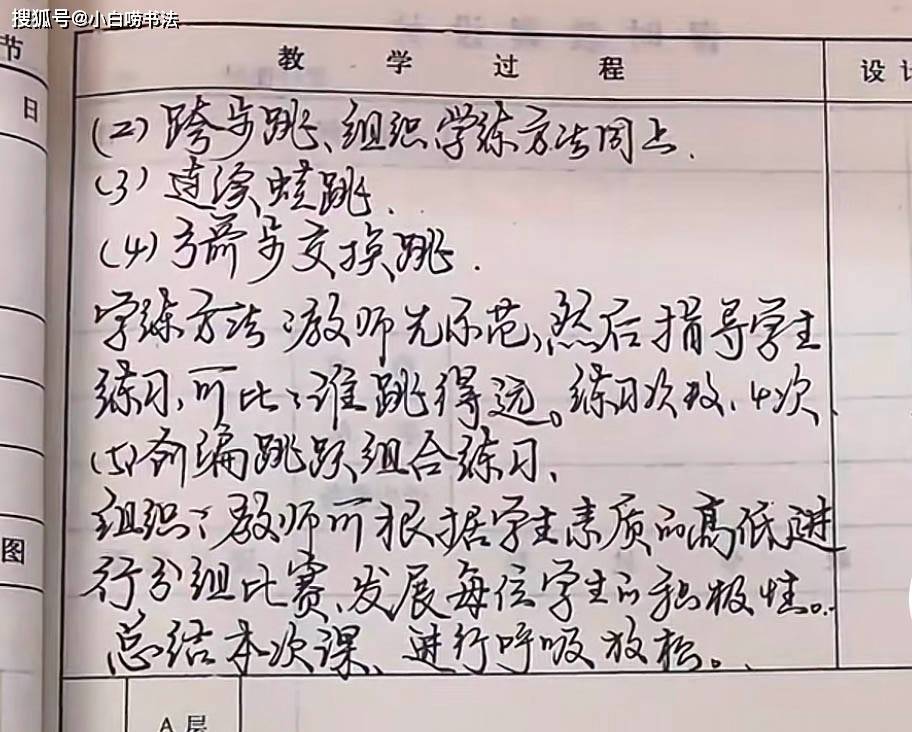 搜狐号@小白唠书法
节
日
图
教学过程
设计
(2)跨步跳、组织学练方法同上.
(3)连续蛙跳.
(4)弓箭步交换跳.
学练方法:教师先示范,然后指导学生
练习,可比:谁跳得远。练习次数、4次.
(5)创编跳跃组合练习、
组织:教师可根据学生素质的高低进
行分组比赛、发展每位学生的积极性。
总结本次课、进行呼吸放松。
A层